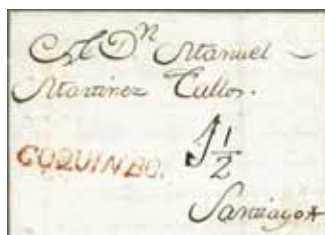 A Dn Manuel
Martinez Tullos.
COQUINBO. 1½
Santiago